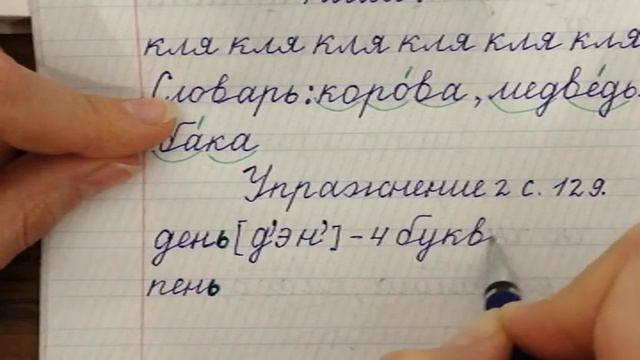 кля кля кля кля кля кля
Словарь: коро́ва, медве́дь
ба́ка
Упражнение 2 с. 129.
день [д'эн'] - 4 букв
пень